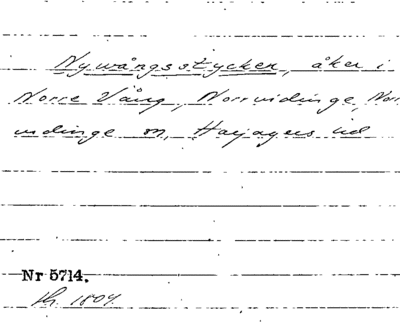 Nywångsstycken, åker i
Norre Vång, Norrvidinge, Nor
vidinge sn, Harjagers hd
Nr 5714.
1804.